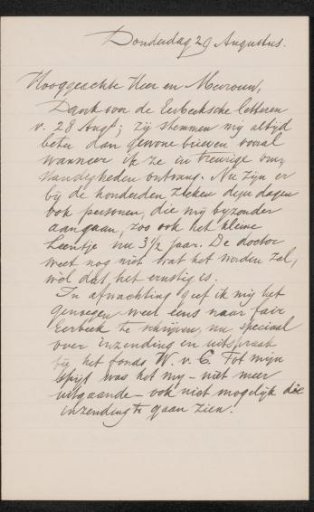 Donderdag 29 Augustus.
Hooggeachte Heer en Mevrouw,
Dank voor de Eerbeeksche letteren
v. 28 Aug; zij stemmen mij altijd
beter dan gewone brieven vooral
wanneer ik ze in treurige om-
standigheden ontvang. Nu zijn er
bij de honderden zieken dezer dagen
ook personen, die mij byzonder
aangaan, zoo ook het kleine
Leentje nu 3½ jaar. De doctor
weet nog niet wat het worden zal,
wòl dat, het ernstig is.
In afwachting geef ik mij het
genoegen weêl eens naar fair
Eerbeek te schrijven, nu speciaal
over inzending en uitspraak
bij het fonds W. v. C. Tot mijn
spijt was het my - niet meer
uitgaande - ook niet mogelijk die
inzending te gaan zien.